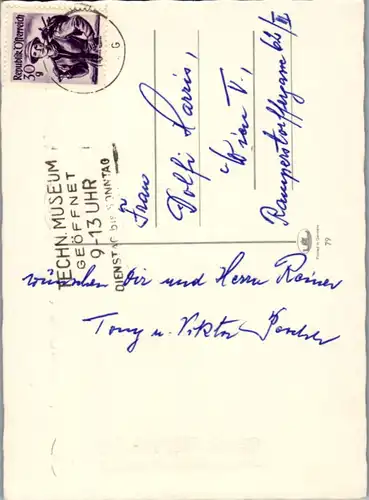 Republik Österreich
30 g
G
TECHN. MUSEUM
GEÖFFNET
9-13 UHR
DIENSTAG BIS SONNTAG
Frau
Dolfi Harris,
Wien V.,
Ramperstorffergasse
79
wünschen Dir und Herrn Rainer
Tony u. Viktor